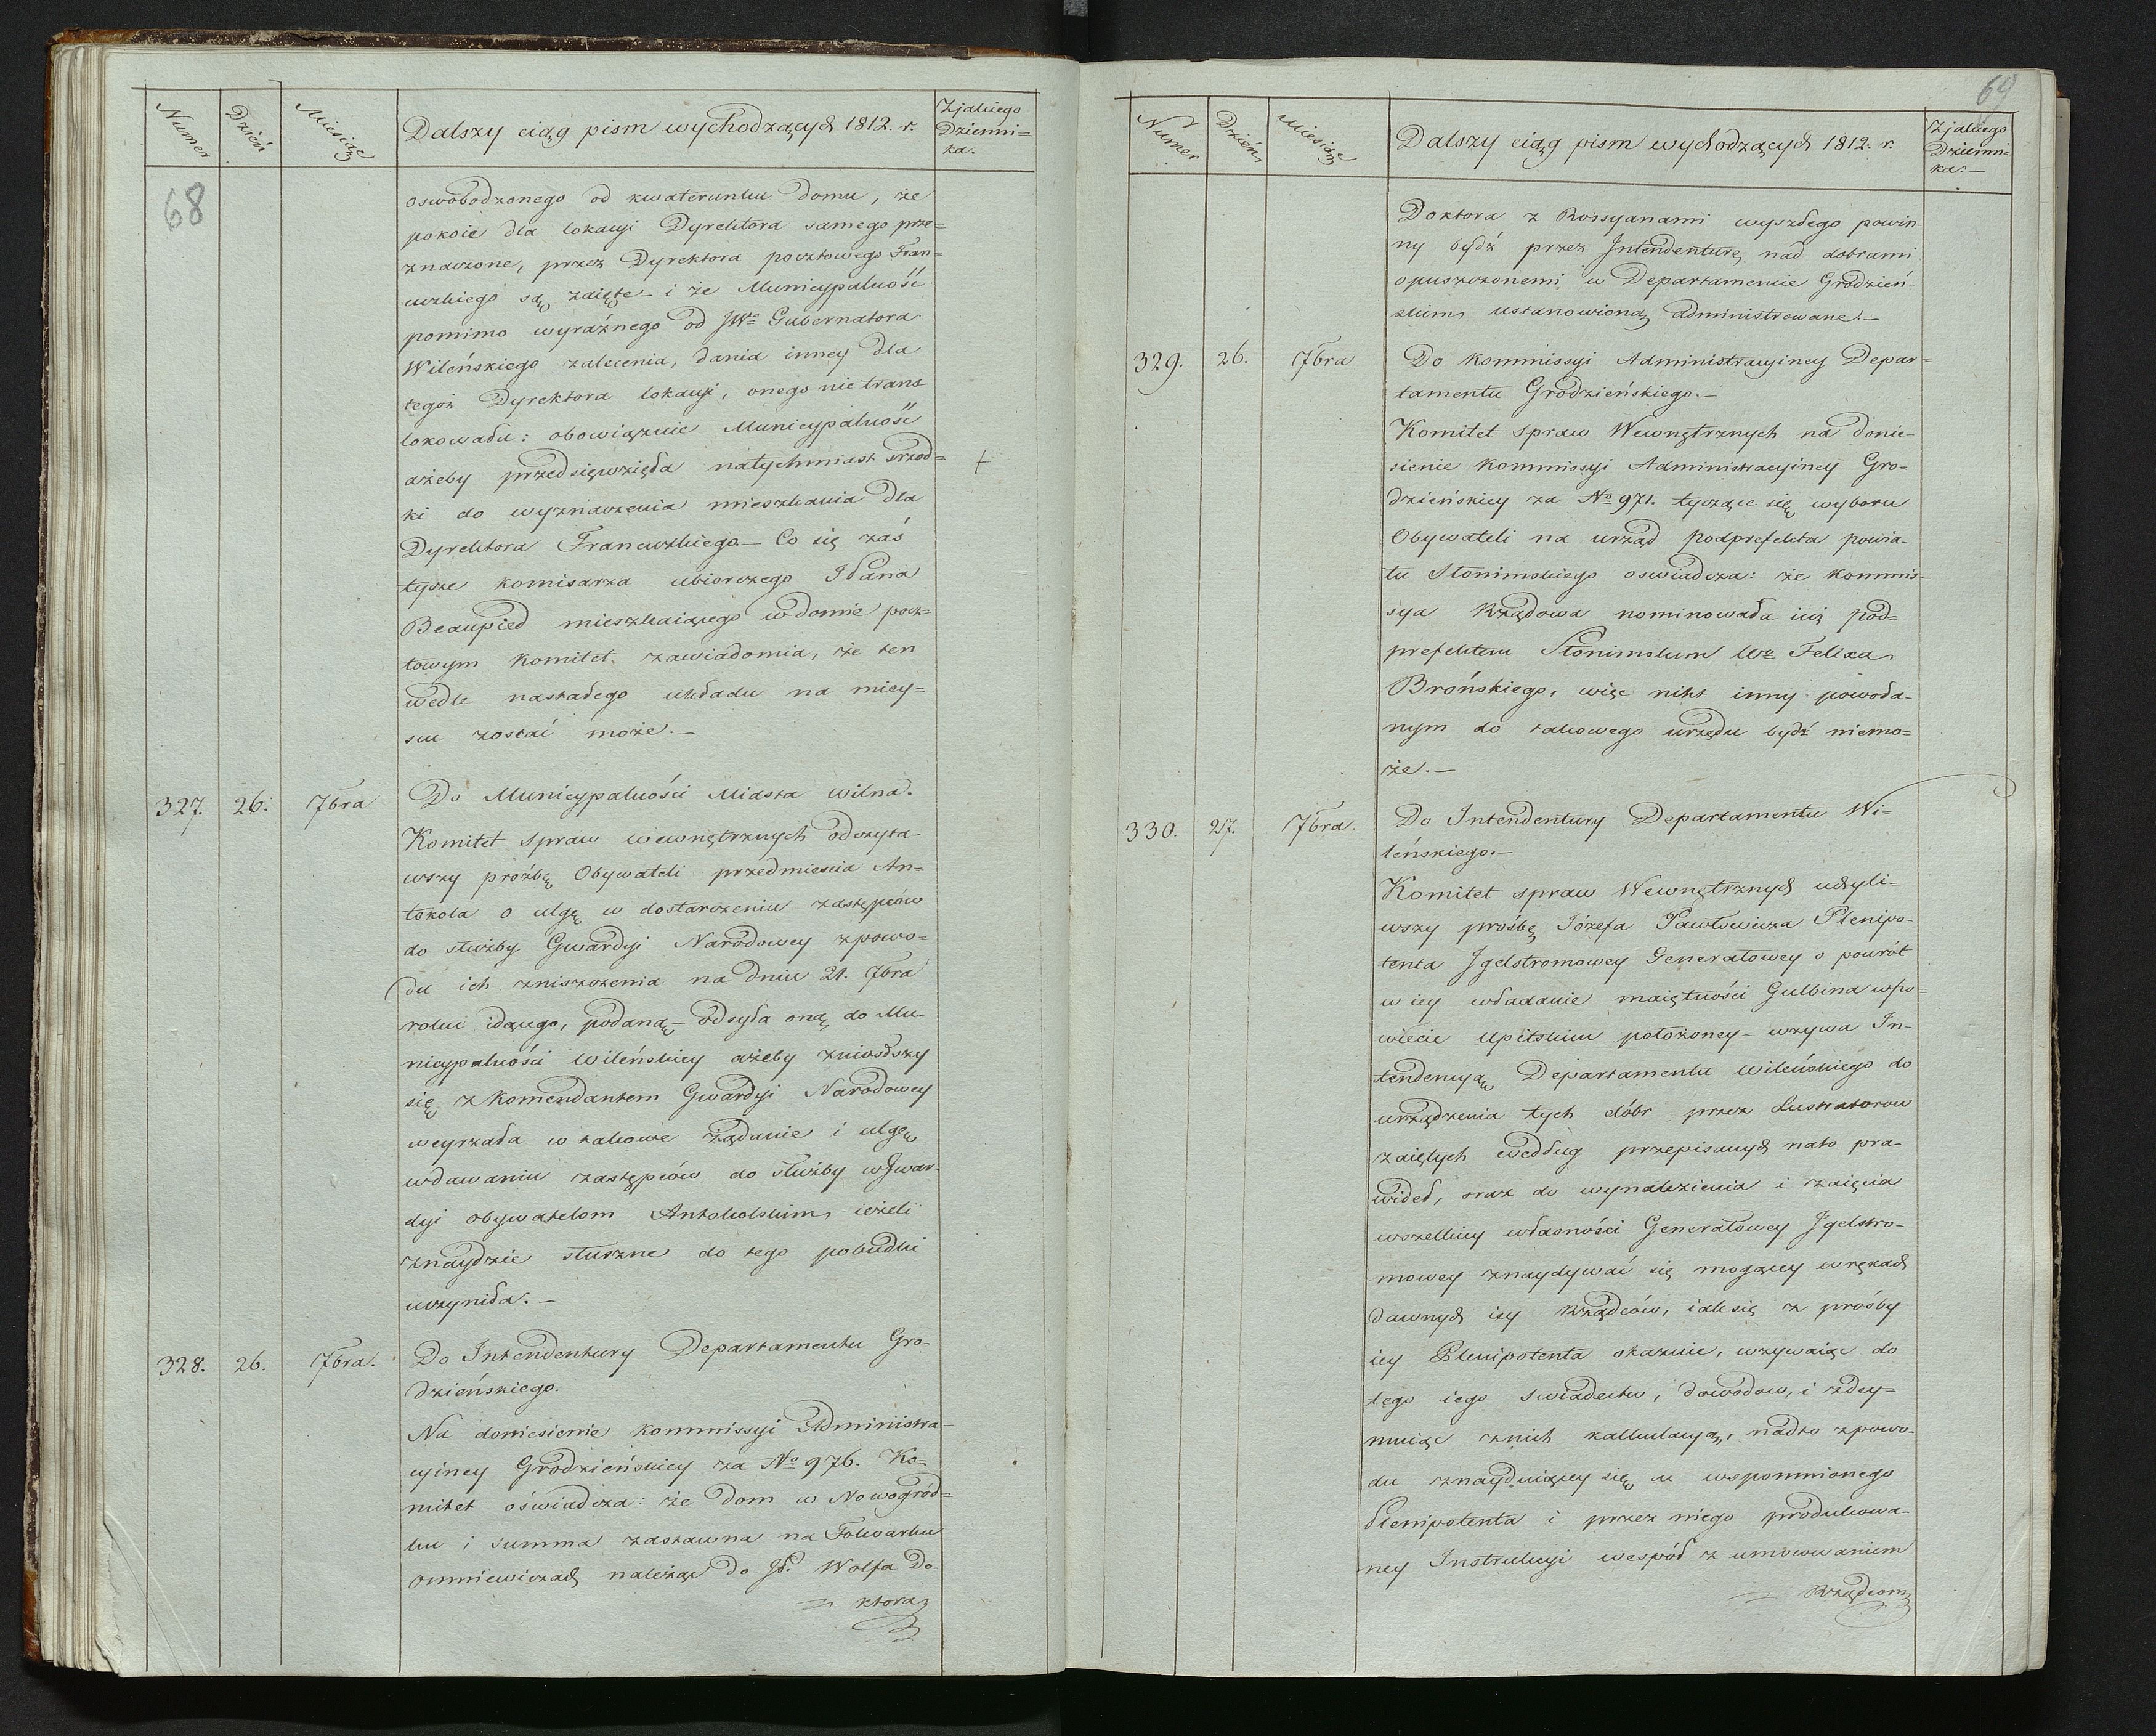 Numer
Dzień
Miesiąc
Dalszy ciąg pism wychodzących 1812. r.
Z jakiego
Dzienni-
ka.
68
oswobodzonego od kwaterunku Domu, że
pokoie dla lokacyi Dyrektora samego prze=
znaczone, przez Dyrektora pocztowego Fran=
cuzkiego są zaięte – i że Municypalność
pomimo wyraźnego od JWo Gubernatora
Wileńskiego zalecenia, dania inney dla
tegoż Dyrektora lokacyi, onego nie trans
lokowała: obowiązuie Municypalność
ażeby przedsięwzięła natychmiast srzod=
+
ki do wyznaczenia mieszkania dla
Dyrektora Francuzkiego – Co się zaś
tycze komisarza ubiorczego JPana
Beaupied mieszkaiącego w domie pocz=
towym Komitet zawiadomia, że ten
wedle nastałego układu na miey=
scu zostać może. –
327. 26. 7bra
Do Municypalności Miasta Wilna.
Komitet Spraw wewnętrznych odczyta
wszy proźbę Obywateli przedmieścia An=
tokola o ulgę w dostarczeniu zastępców
do służby Gwardyi Narodowey z powo=
du ich zniszczenia na dniu 21. 7bra
roku idącego, podaną – odsyła oną do Mu
nicypalności Wileńskiey ażeby zniosłszy
się z Komendantem Gwardyi Narodowey
weyrzała w takowe żądanie i ulgę
w dawaniu zastępców do służby w Gwar-
dyi obywatelom Antokolskim, ieżeli
znaydzie słuszne do tego pobudki
uczyniła. –
328. 26. 7bra.
Do Intendentury Departamentu Gro-
dzieńskiego.
Na doniesienie Kommissyi Administra-
cyiney Grodzieńskiey za No 976. Ko=
mitet oświadcza: że Dom w Nowogród=
ku i summa zastawna na Folwarku
Omniewiczach należące do JP. Wolfa Do-
ktora
69
Numer
Dzień
Miesiąc
Dalszy ciąg pism wychodzących 1812. r.
Z jakiego
Dzienni=
ka. –
Doktora z Rossyanami wyszłego powin-
ny bydź przez Intendenturę nad dobrami
opuszczonemi w Departamencie Grodzień-
skim ustanowioną administrowane. –
329. 26. 7bra
Do Kommissyi Administracyiney Depar=
tamentu Grodzieńskiego. –
Komitet Spraw Wewnętrznych na donie-
sienie Kommissyi Administracyiney Gro=
dzieńskiey za No 971. tyczące się wyboru
Obywateli na urząd podprefekta powia-
tu Słonimskiego oswiadcza: że Kommis-
sya Rządowa nominowała iuż pod=
prefektem Słonimskim Wo Felixa
Brońskiego, więc nikt inny powoła-
nym do takowego urzędu bydź niemo=
że. –
330. 27. 7bra.
Do Intendentury Departamentu Wi-
leńskiego. –
Komitet Spraw Wewnętrznych uchyli=
wszy prośbę Józefa Pawłowicza Plenipo-
tenta Jgelstromowey Generałowey o powrót
w iey władanie maiętności Gulbina w po=
wiecie Upitskim położoney – wzywa In-
tendencyą Departamentu Wileńskiego do
urządzenia tych dóbr przez Lustratorow
zaiętych według przepisanych nato pra-
wideł, oraz do wynalezienia i zaięcia
wszelkiey własności Generałowey Jgelstro-
mowey znaydywać się mogącey w rękach
dawnych iey Rządców, iak się z prośby
iey Plenipotenta okazuie, wzywaiąc do
tego iego swiadectw, dowodow, i zdey=
muiąc z nich kalkulacyą, nadto z powo-
du znayduiącey się u wspomnionego
Plenipotenta i przez niego produkowa-
ney Instrukcyi wespół z umocowaniem
Rządcom